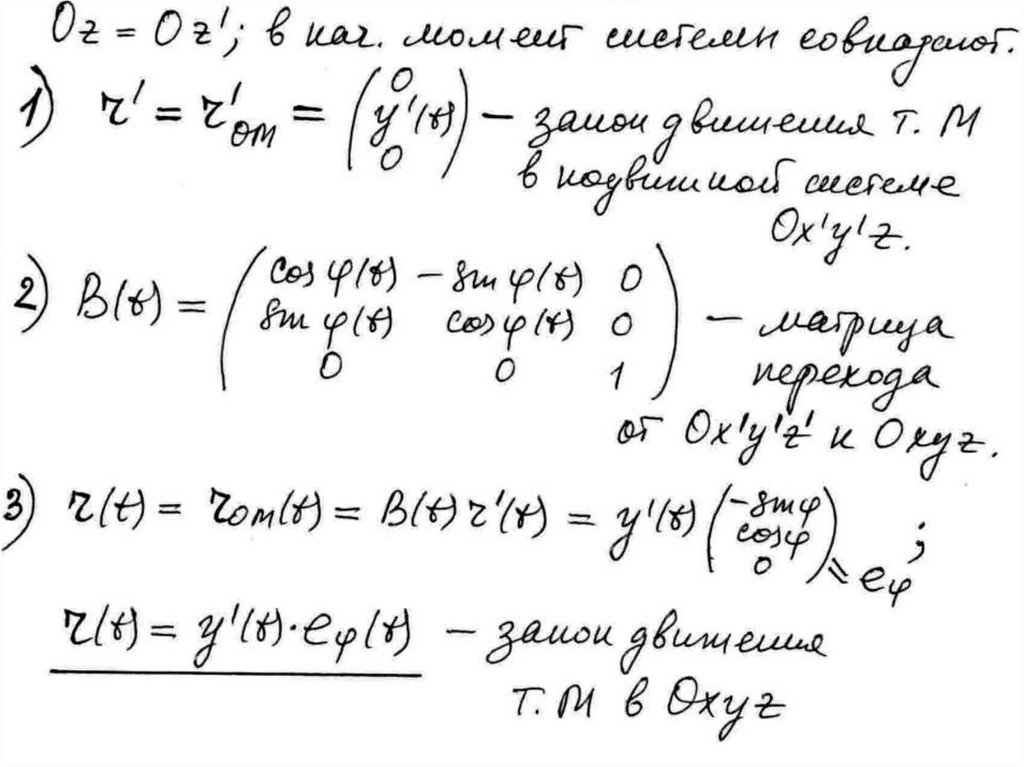 Oz = Oz'; в нач. момент системы совпадают.
1) r' = r'ом = (0 y'(t) 0) – закон движения т. М
в подвижной системе
Ox'y'z.
2) B(t) = (cos φ(t) – sin φ(t) 0
sin φ(t) cos φ(t) 0
0 0 1) – матрица
перехода
от Ox'y'z' к Oxyz.
3) r(t) = rом(t) = B(t) r'(t) = y'(t) (-sin φ cos φ 0) = eφ;
r(t) = y'(t)·eφ(t) – закон движения
т. М в Oxyz